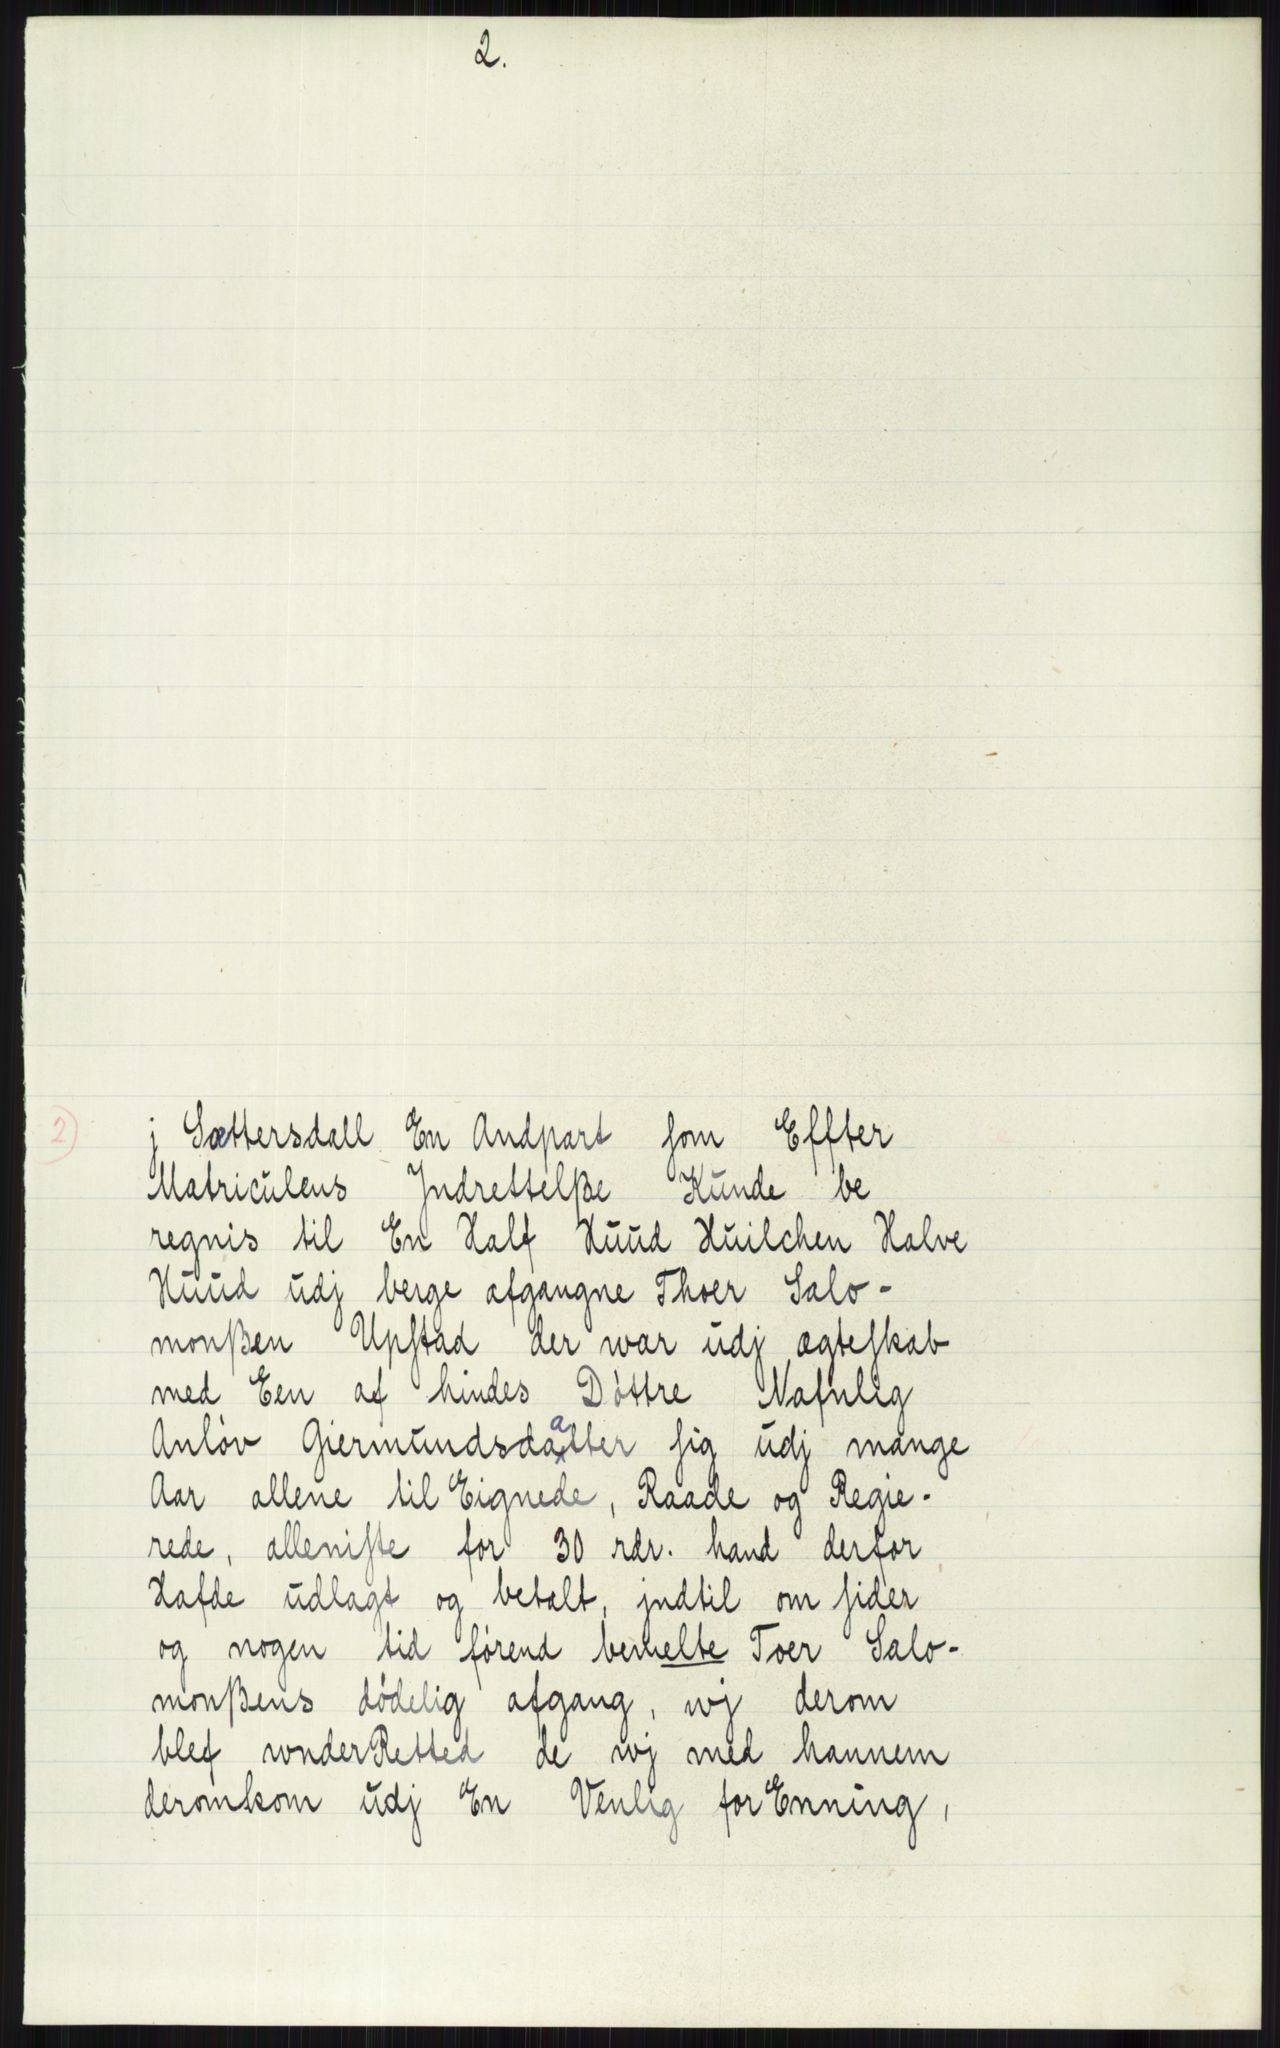 2.
2)
j Sættersdall En Andpart som Effter
Matricúlens Jndrettelße Kúnde be
regnis til En Half Húúd Húilchen Halve
Húúd údj berge afgangne Thoer Salo-
monßen Upstad der war údj ægteskab
med Een af hindes Døttre Nafnlig
Anløv Giermúndsdaatter sig údj mange
Aar allene til Eignede, Raade og Regie-
rede, alleniste for 30 rdr. hand derfor
Hafde údlagt og betalt, jndtil om sider
og nogen tid førend bemelte Toer Salo-
monßens dødelig afgang, wj derom
blef wnderRetted de wj med hannem
deromkom údj En Venlig forEnning,